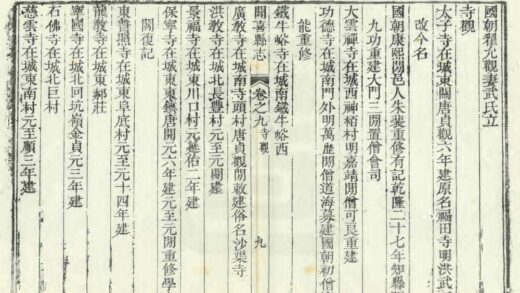 國朝翟允觀妻武氏立
寺觀
太子寺在城東關唐貞觀六年建原名福田寺明洪武
改今名
國朝康熙閒邑人朱裴重修有記乾隆二十七年知縣
九功重建大門三閒置僧會司
大雲禪寺在城西神栢村明嘉靖閒僧可艮重建
功德寺在城南門外明萬歷閒僧道海募建國朝初僧
能重修
鐵牛峪寺在城南鐵牛峪西
聞喜縣志 卷之九 寺觀 九
廣教寺在城南寺頭村唐貞觀閒敕建俗名沙渠寺
洪教寺在城北長豐村元至元閒建
景福寺在城東川口村元延佑二年建
保寧寺在城東東鎮唐開元六年建元至元閒重修學
閣復記
東普照寺在城東阜底村元至元十四年建
龍教寺在城東郝莊
寶國寺在城北回坑嶺金貞元三年建
石佛寺在城北巨村
慈雲寺在城東南村元至順三年建